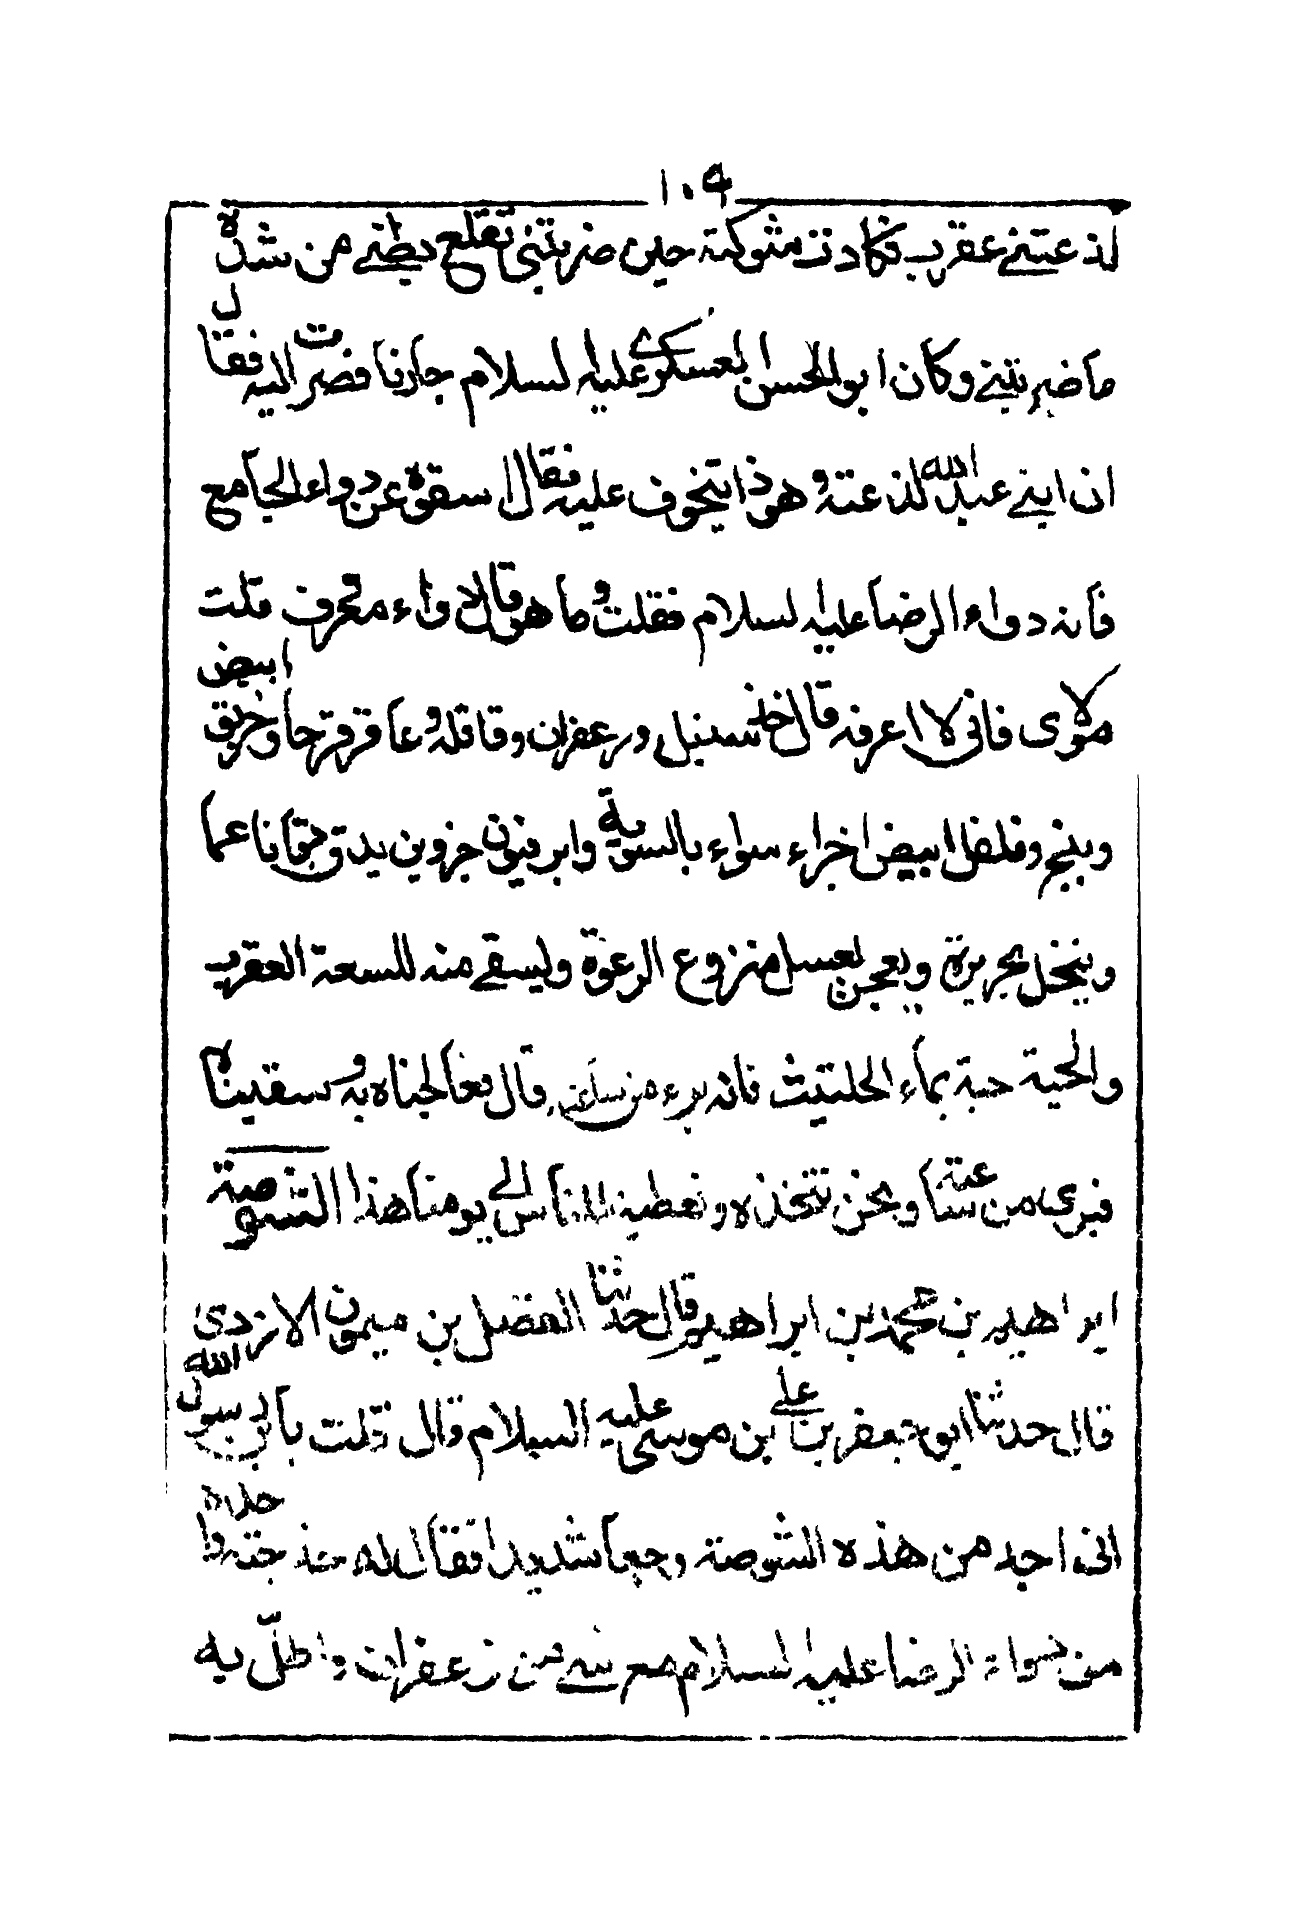 ١٠٩
لذعتني عقرب فكادت شوكته حين ضربتني تقلع بطني من شدة
ما ضربتني وكان ابو الحسن العسكري عليه السلام جارنا فصرت اليه فقال
ان ابني عبد الله لذعته وهوذا يتخوف عليه فقال اسقوه عن دواء الجامع
فانه دواء الرضا عليه السلام فقلت وما هو قال دواء معروف قلت
مولاي فاني لا اعرفه قال خذ سنبل وزعفران وقاقله وعاقرقرحا وخربق ابيض
وبنج وفلفل ابيض اجزاء سواء بالسوية وابرفيون جزوين يدق دقا ناعما
وينخل بحريرة ويعجن بعسل منزوع الرغوة وليسقى منه للسعة العقرب
والحية حبة بماء الحلتيث فانه يبرء من ساعته قال فعالجناه به وسقيناه
فبرئ من ساعته ونحن نتخذه ونعطيه للناس الى يومنا هذا الشوصة
ابراهيم بن محمد بن ابراهيم قال حدثنا الفضل بن ميمون الازدي
قال حدثنا ابو جعفر بن علي بن موسى عليه السلام قال قلت يا بن رسول الله
اني اجد من هذه الشوصة وجعا شديدا فقال له خذ حبة واحدة
من دواء الرضا عليه السلام مع شيء من زعفران واطل به